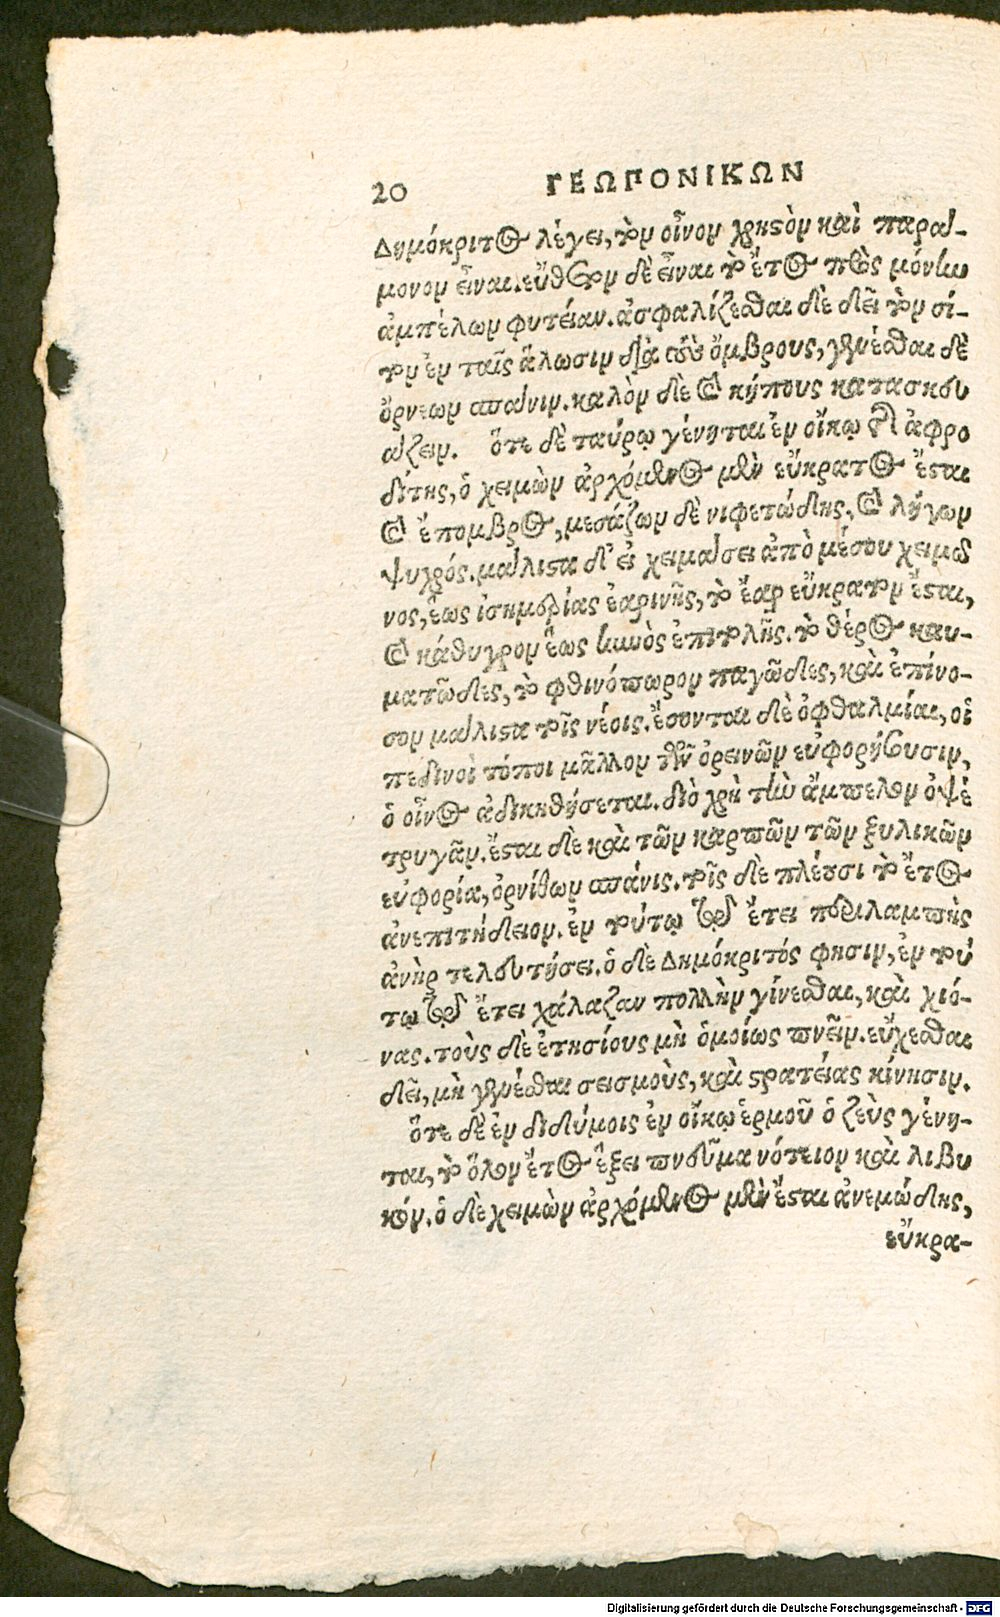 20 ΓΕΩΠΟΝΙΚΩΝ
Δημόκριτος λέγει, τὸν οἶνον χρηστὸν καὶ παρά-
μονον εἶναι. εὔθετον δὲ εἶναι τὸ ἔτος πρὸς μόνην
ἀμπέλων φυτείαν. ἀσφαλίζεσθαι δὲ δεῖ τὸν σί-
τον ἐν ταῖς ἅλωσιν διὰ τοὺς ὄμβρους, γενέσθαι δὲ
ὄρνεων σπάνιν. καλὸν δὲ καὶ κήπους κατασκευ
άζειν. ὅτε δὲ ταύρῳ γένηται ἐν οἴκῳ τῆς ἀφρο
δίτης, ὁ χειμὼν ἀρχόμενος μὲν εὔκρατος ἔσται
καὶ ἔπομβρος, μεσάζων δὲ νιφετώδης, καὶ λήγων
ψυχρός. μάλιστα δ' εἰ χειμάσει ἀπὸ μέσου χειμῶ
νος, ἕως ἰσημερίας ἐαρινῆς, τὸ ἔαρ εὔκρατον ἔσται,
καὶ κάθυγρον ἕως κυνὸς ἐπιτολῆς. τὸ θέρος καυ-
ματῶδες, τὸ φθινόπωρον παγῶδες, καὶ ἐπίνο-
σον μάλιστα τοῖς νέοις. ἔσονται δὲ ὀφθαλμίαι, οἱ
πεδινοὶ τόποι μᾶλλον τῶν ὀρεινῶν εὐφορήσουσιν,
ὁ οἶνος ἀδικηθήσεται. διὸ χρὴ τὴν ἄμπελον ὀψὲ
τρυγᾶν. ἔσται δὲ καὶ τῶν καρπῶν τῶν ξυλικῶν
εὐφορία, ὀρνίθων σπάνις. τοῖς δὲ πλέουσι τὸ ἔτος
ἀνεπιτήδειον. ἐν τούτῳ τῷ ἔτει περιλαμπὴς
ἀνὴρ τελευτήσει. ὁ δὲ Δημόκριτός φησιν, ἐν τού
τῳ τῷ ἔτει χάλαζαν πολλὴν γίνεσθαι, καὶ χιό-
νας. τοὺς δὲ ἐτησίους μὴ ὁμοίως πνεῖν. εὔχεσθαι
δεῖ, μὴ γενέσθαι σεισμοὺς, καὶ στρατείας κίνησιν.
ὅτε δὲ ἐν διδύμοις ἐν οἴκῳ ἑρμοῦ ὁ ζεὺς γένη-
ται, τὸ ὅλον ἔτος ἕξει πνεῦμα νότειον καὶ λιβυ
κόν. ὁ δὲ χειμὼν ἀρχόμενος μὲν ἔσται ἀνεμώδης,
εὔκρα-
Digitalisierung gefördert durch die Deutsche Forschungsgemeinschaft - DFG